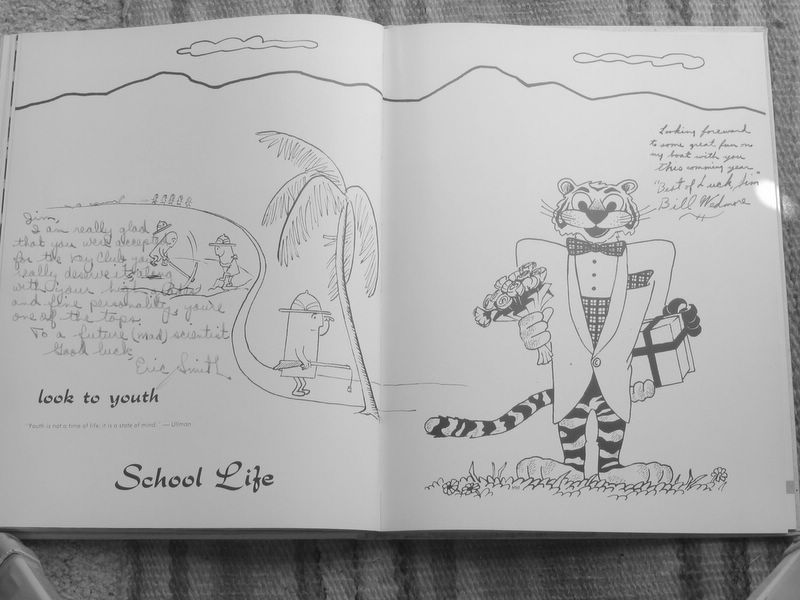 Jim,
I am really glad
that you were accepted
for the Key Club you
really deserve it along
with your high
and fine personality you're
one of the tops.
To a future (mad) scientist
Good luck,
Eric Smith
look to youth
"Youth is not a time of life; it is a state of mind." — Ullman
School Life
Looking foreward
to some great fun on
my boat with you
this comming year
"Best of Luck, Jim"
Bill Wedmore